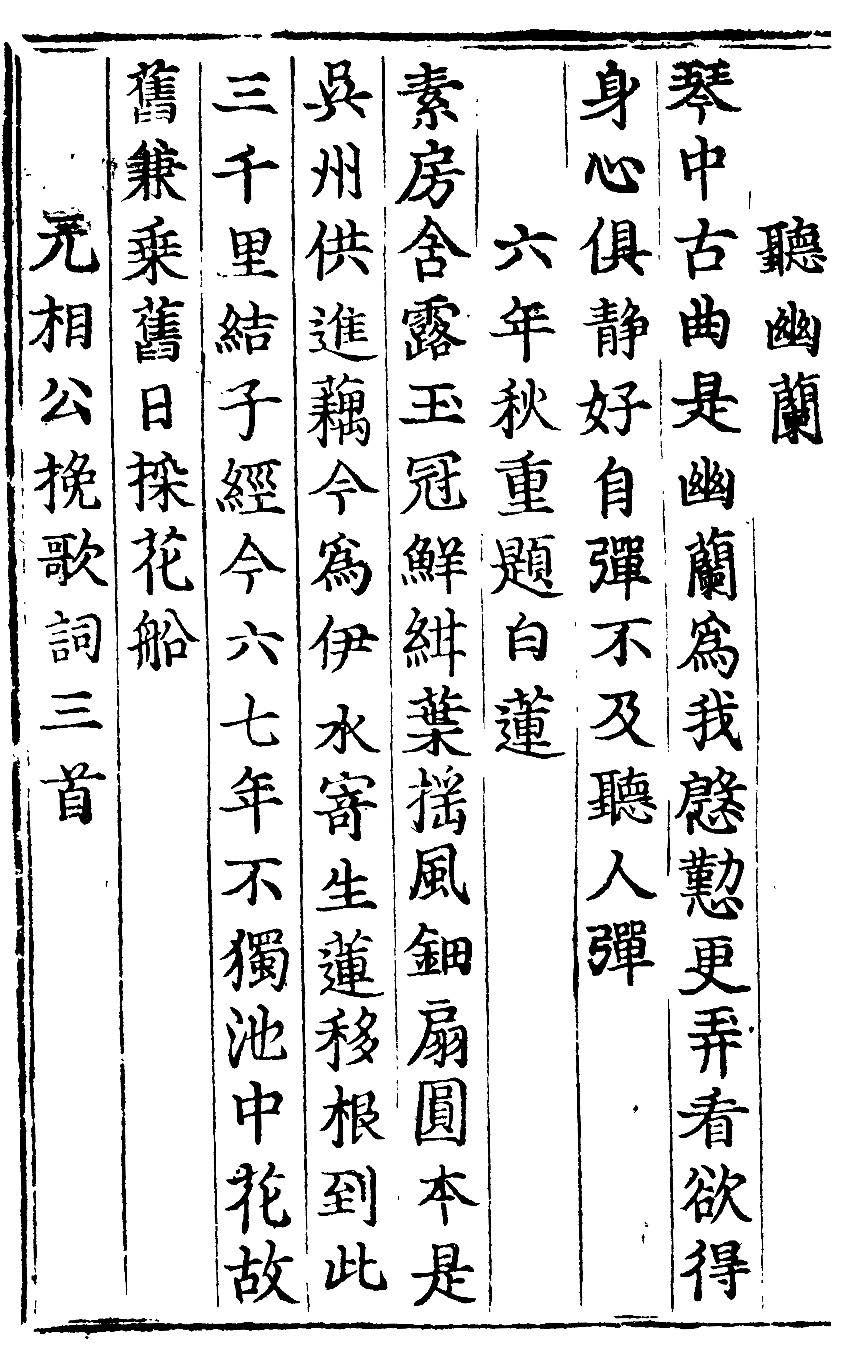 聽幽蘭
琴中古曲是幽蘭爲我慇懃更弄看欲得
身心俱静好自彈不及聽人彈
六年秋重題白蓮
素房含露玉冠鮮紺葉揺風鈿扇圓本是
吳州供進藕今爲伊水寄生蓮移根到此
三千里結子經今六七年不獨池中花故
舊兼乗舊日採花船
元相公挽歌詞三首